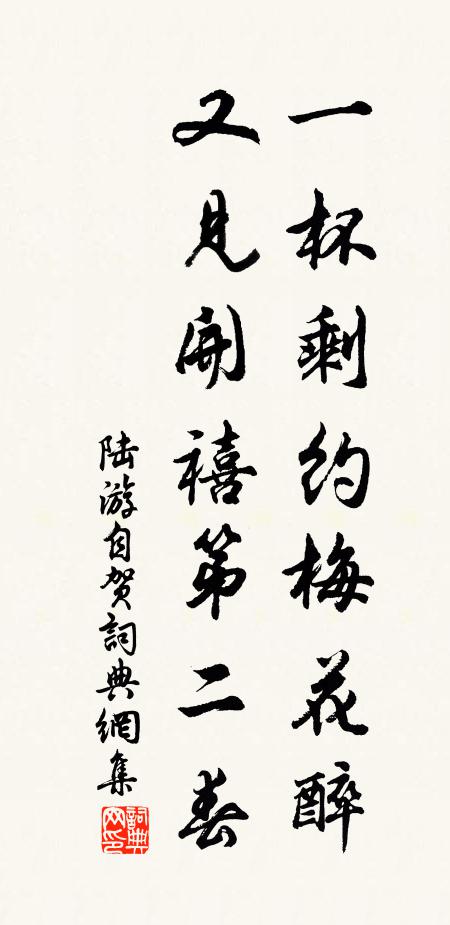 一杯剩约梅花醉
又見開禧第二春
陆游自贺詞典網集
詞典网印